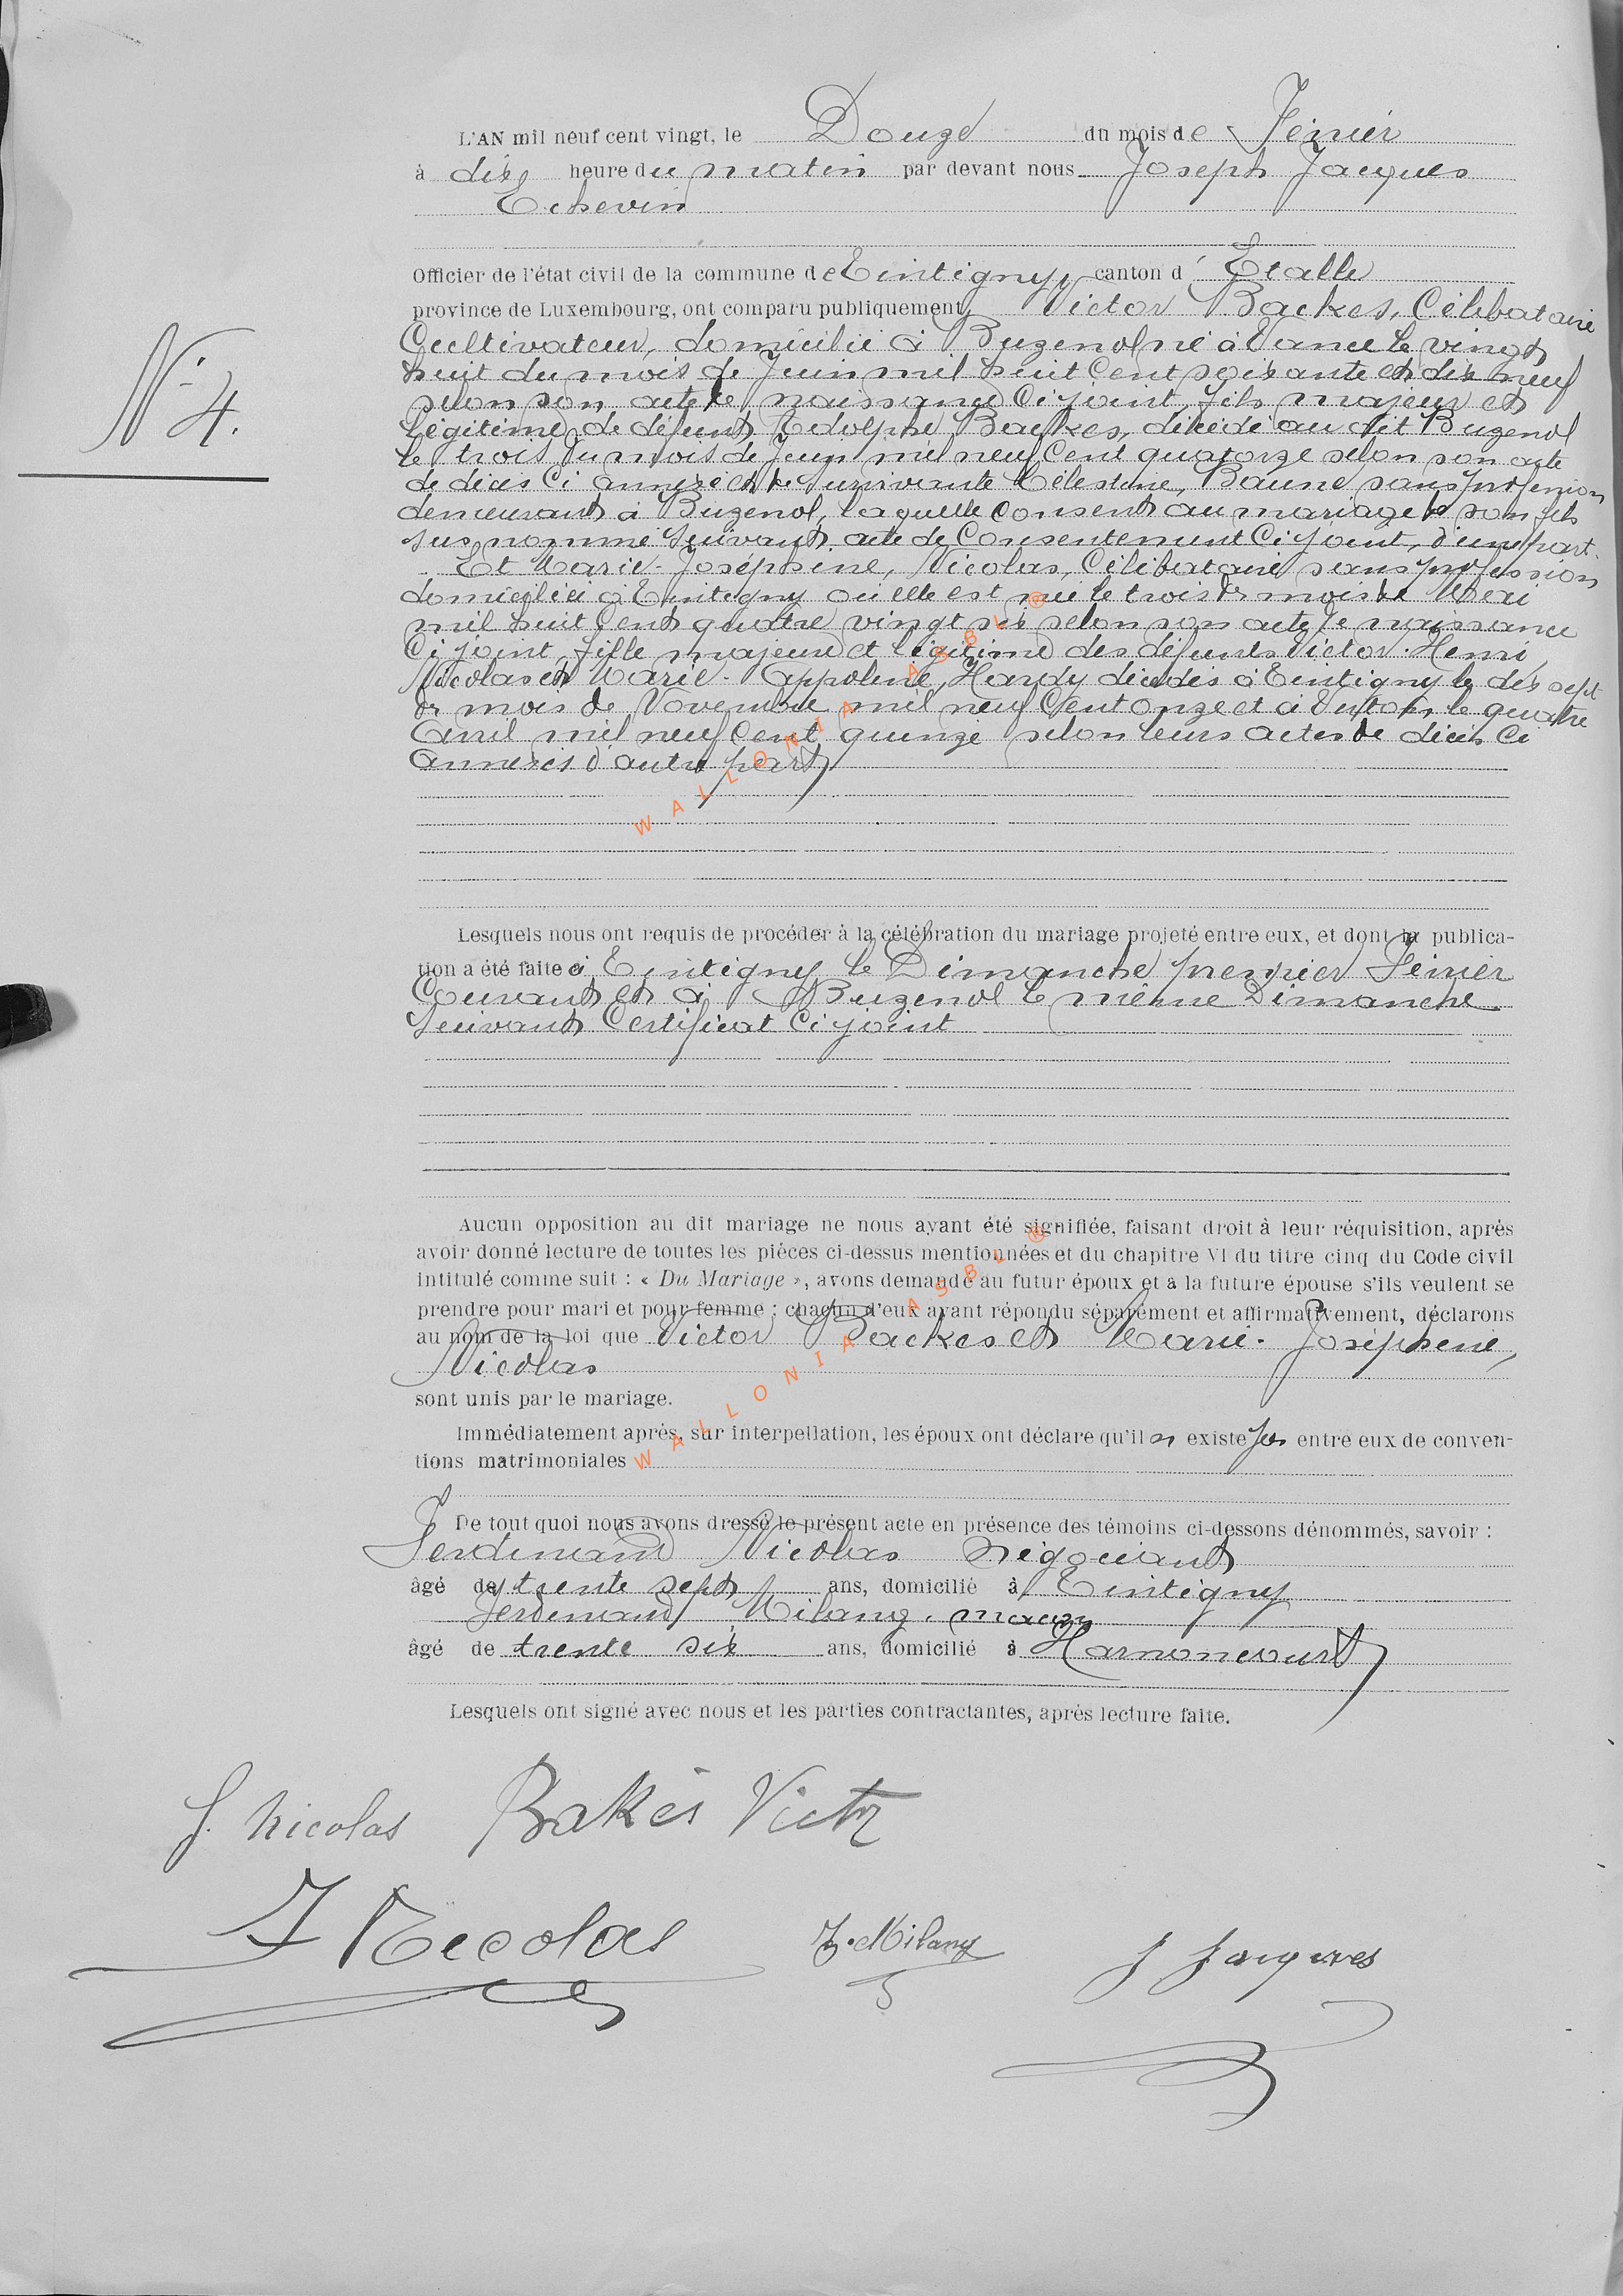 N° 4.
L'AN mil neuf cent vingt, le Douze du mois de Février
à dix heure du matin par devant nous Joseph Jacques
Echevin
Officier de l'état civil de la commune de Tintigny canton d' Etalle
province de Luxembourg, ont comparu publiquement Victor Backes, Célibataire
Cultivateur, domicilié à Buzenol né à Vance le vingt
huit du mois de Juin mil huit Cent soixante et dix neuf
selon son acte de naissance Ci joint, fils majeur et
légitime de défunt Adolphe Backes, décédé au dit Buzenol
le trois du mois de Juin mil neuf Cent quatorze selon son acte
de décès Ci annexé et de survivante Célestine, Baune sans profession
demeurant à Buzenol, laquelle Consent au mariage de son fils
sus nommé suivant acte de Consentement Ci joint, d'une part.
Et Marie-Joséphine, Nicolas, Célibataire sans profession
domiciliée à Tintigny où elle est née le trois du mois de Mai
mil huit Cent quatre vingt six selon son acte de naissance
Ci joint, fille majeure et légitime des défunts Victor-Henri
Nicolas et Marie-Appoline, Hardy décédés à Tintigny le dix sept
du mois de Novembre mil neuf Cent onze et à Virton le quatre
Avril mil neuf Cent quinze selon leurs actes de décès Ci
annexés d'autre part
Lesquels nous ont requis de procéder à la célébration du mariage projeté entre eux, et dont la publica-
tion a été faite à Tintigny le Dimanche premier Février
Courant et à Buzenol le même Dimanche
suivant Certificat Ci joint
Aucun opposition au dit mariage ne nous ayant été signifiée, faisant droit à leur réquisition, après
avoir donné lecture de toutes les pièces ci-dessus mentionnées et du chapitre VI du titre cinq du Code civil
intitulé comme suit : « Du Mariage », avons demandé au futur époux et à la future épouse s'ils veulent se
prendre pour mari et pour femme ; chacun d'eux ayant répondu séparément et affirmativement, déclarons
au nom de la loi que Victor Backes et Marie-Joséphine,
Nicolas
sont unis par le mariage.
Immédiatement après, sur interpellation, les époux ont déclare qu'il n existe pas entre eux de conven-
tions matrimoniales
De tout quoi nous avons dressé le présent acte en présence des témoins ci-dessons dénommés, savoir :
Ferdinand Nicolas Négociant
âgé de trente sept ans, domicilié à Tintigny
Ferdinand Milany, maçon
âgé de trente six ans, domicilié à Harnoncourt
Lesquels ont signé avec nous et les parties contractantes, après lecture faite.
J. Nicolas Bakès Victor
F Nicolas F. Milany J Jacques
WALLONIA ASBL ®
WALLONIA ASBL ®